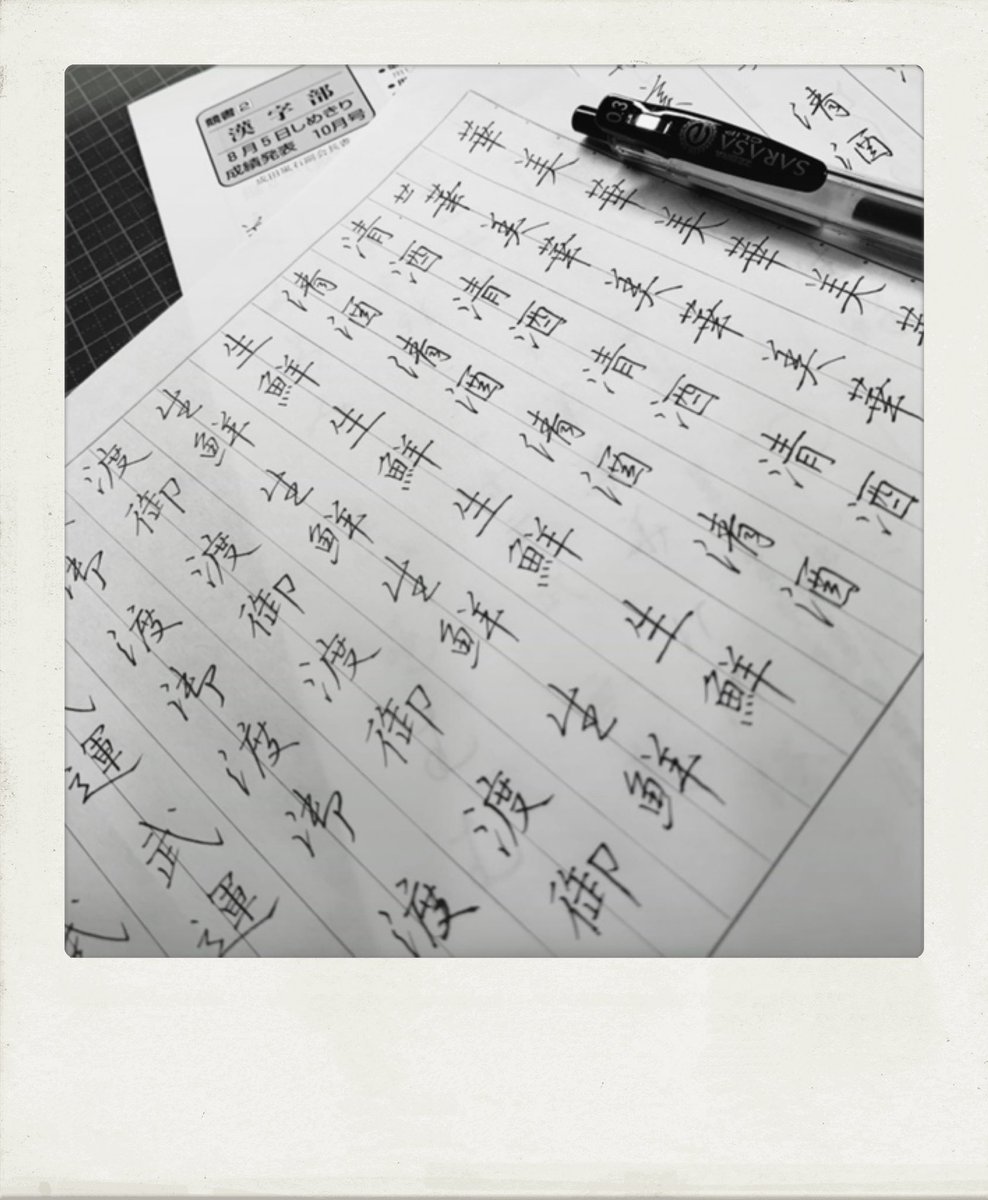 競書2
漢字部
8月5日しめきり
成績発表 10月号
0.3
SARASA
CLIP
清酒
華美華美華美華
華美華美華美華
清酒清酒清酒清酒
清酒清酒清酒清酒
生鮮生鮮生鮮生鮮
生鮮生鮮生鮮生鮮
渡御渡御渡御渡御
御渡御渡御渡
運武運
武